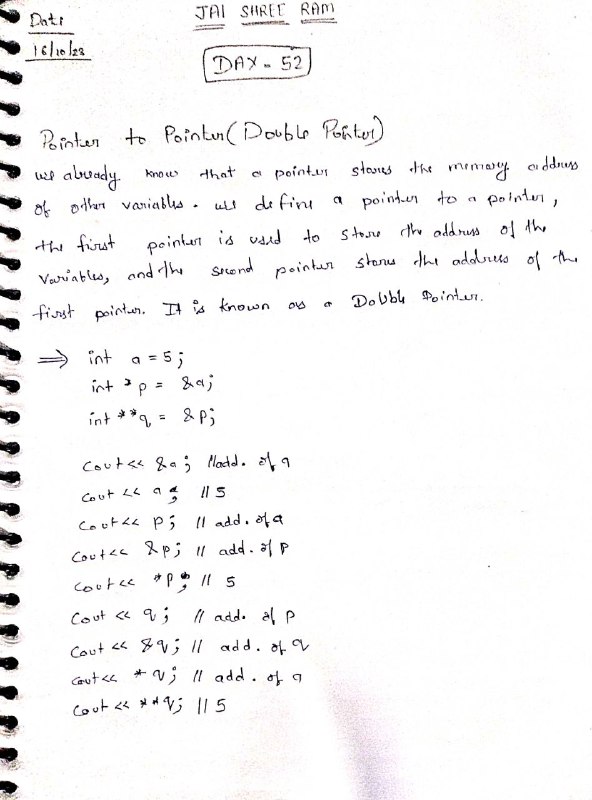 JAI SHREE RAM
Date
16/10/23
DAY - 52
Pointer to Pointer (Double Pointer)
we already know that a pointer stores the memory address
of other variables. we define a pointer to a pointer,
the first pointer is used to store the address of the
variables, and the second pointer stores the address of the
first pointer. It is known as a Double Pointer.
⇒ int a = 5;
int *p = &a;
int **q = &p;
cout << &a; //add. of a
cout << a; // 5
cout << p; // add. of a
cout << &p; // add. of p
cout << *p; // 5
cout << q; // add. of p
cout << &q; // add. of q
cout << *q; // add. of a
cout << **q; // 5